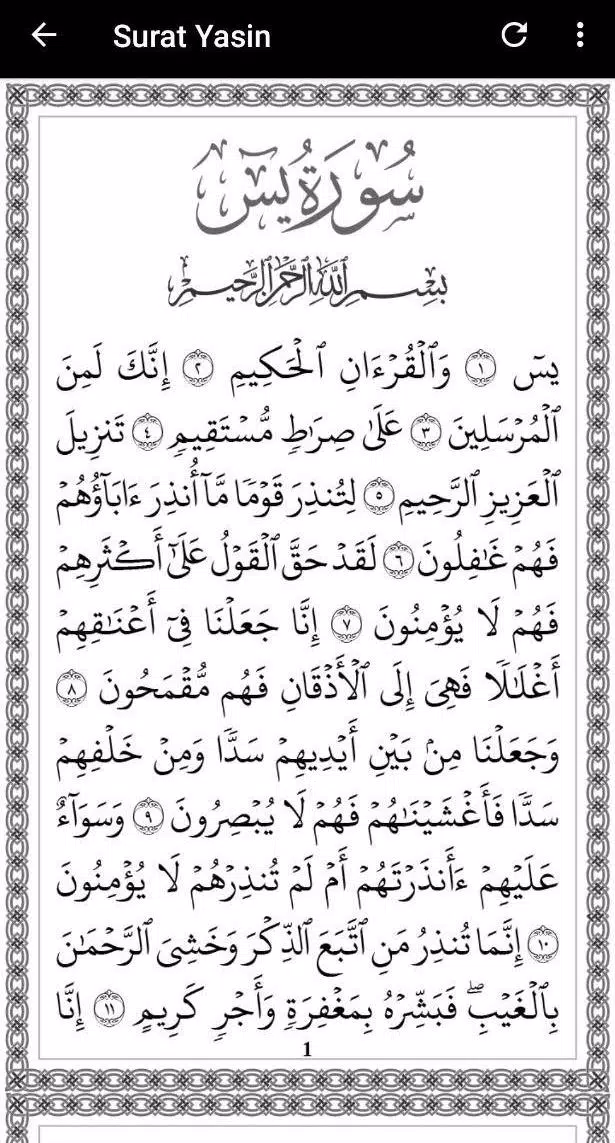 Surat Yasin
سُورَةُ يسٓ
بِسۡمِ ٱللَّهِ ٱلرَّحۡمَٰنِ ٱلرَّحِيمِ
يسٓ ١ وَٱلۡقُرۡءَانِ ٱلۡحَكِيمِ ٢ إِنَّكَ لَمِنَ
ٱلۡمُرۡسَلِينَ ٣ عَلَىٰ صِرَٰطٖ مُّسۡتَقِيمٖ ٤ تَنزِيلَ
ٱلۡعَزِيزِ ٱلرَّحِيمِ ٥ لِتُنذِرَ قَوۡمٗا مَّآ أُنذِرَ ءَابَآؤُهُمۡ
فَهُمۡ غَٰفِلُونَ ٦ لَقَدۡ حَقَّ ٱلۡقَوۡلُ عَلَىٰٓ أَكۡثَرِهِمۡ
فَهُمۡ لَا يُؤۡمِنُونَ ٧ إِنَّا جَعَلۡنَا فِيٓ أَعۡنَٰقِهِمۡ
أَغۡلَٰلٗا فَهِيَ إِلَى ٱلۡأَذۡقَانِ فَهُم مُّقۡمَحُونَ ٨
وَجَعَلۡنَا مِنۢ بَيۡنِ أَيۡدِيهِمۡ سَدّٗا وَمِنۡ خَلۡفِهِمۡ
سَدّٗا فَأَغۡشَيۡنَٰهُمۡ فَهُمۡ لَا يُبۡصِرُونَ ٩ وَسَوَآءٌ
عَلَيۡهِمۡ ءَأَنذَرۡتَهُمۡ أَمۡ لَمۡ تُنذِرۡهُمۡ لَا يُؤۡمِنُونَ
١٠ إِنَّمَا تُنذِرُ مَنِ ٱتَّبَعَ ٱلذِّكۡرَ وَخَشِيَ ٱلرَّحۡمَٰنَ
بِٱلۡغَيۡبِۖ فَبَشِّرۡهُ بِمَغۡفِرَةٖ وَأَجۡرٖ كَرِيمٍ ١١ إِنَّا
1